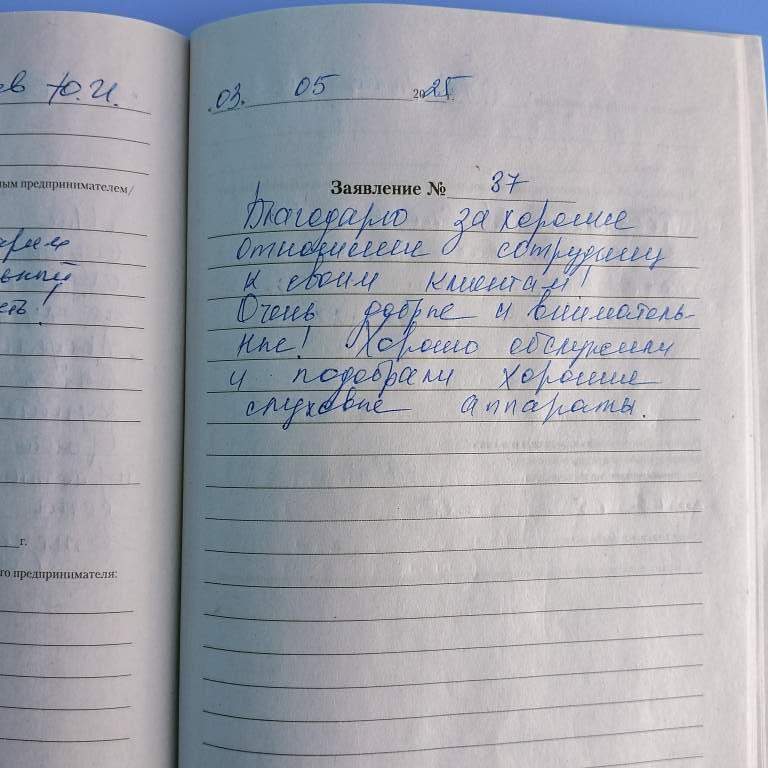 в Ю.И.
ным предпринимателем/
ьный
г.
го предпринимателя:
.03. 05 2025
Заявление № 37
Благодарю за хорошие
отношение сотрудниц
к своим клиентам!
Очень добрые и вниматель-
ные! Хорошо обслужили
и подобрали хорошие
слуховые аппараты.